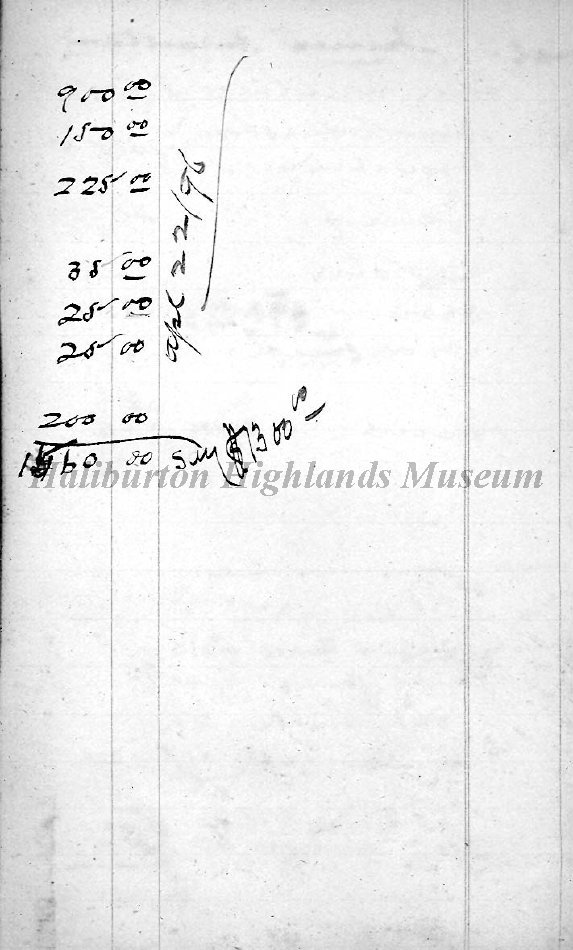 900 00
150 00
225 00
35 00
25 00
25 00
apl 22/96
200 00
1560 00 say $1300 00
Haliburton Highlands Museum